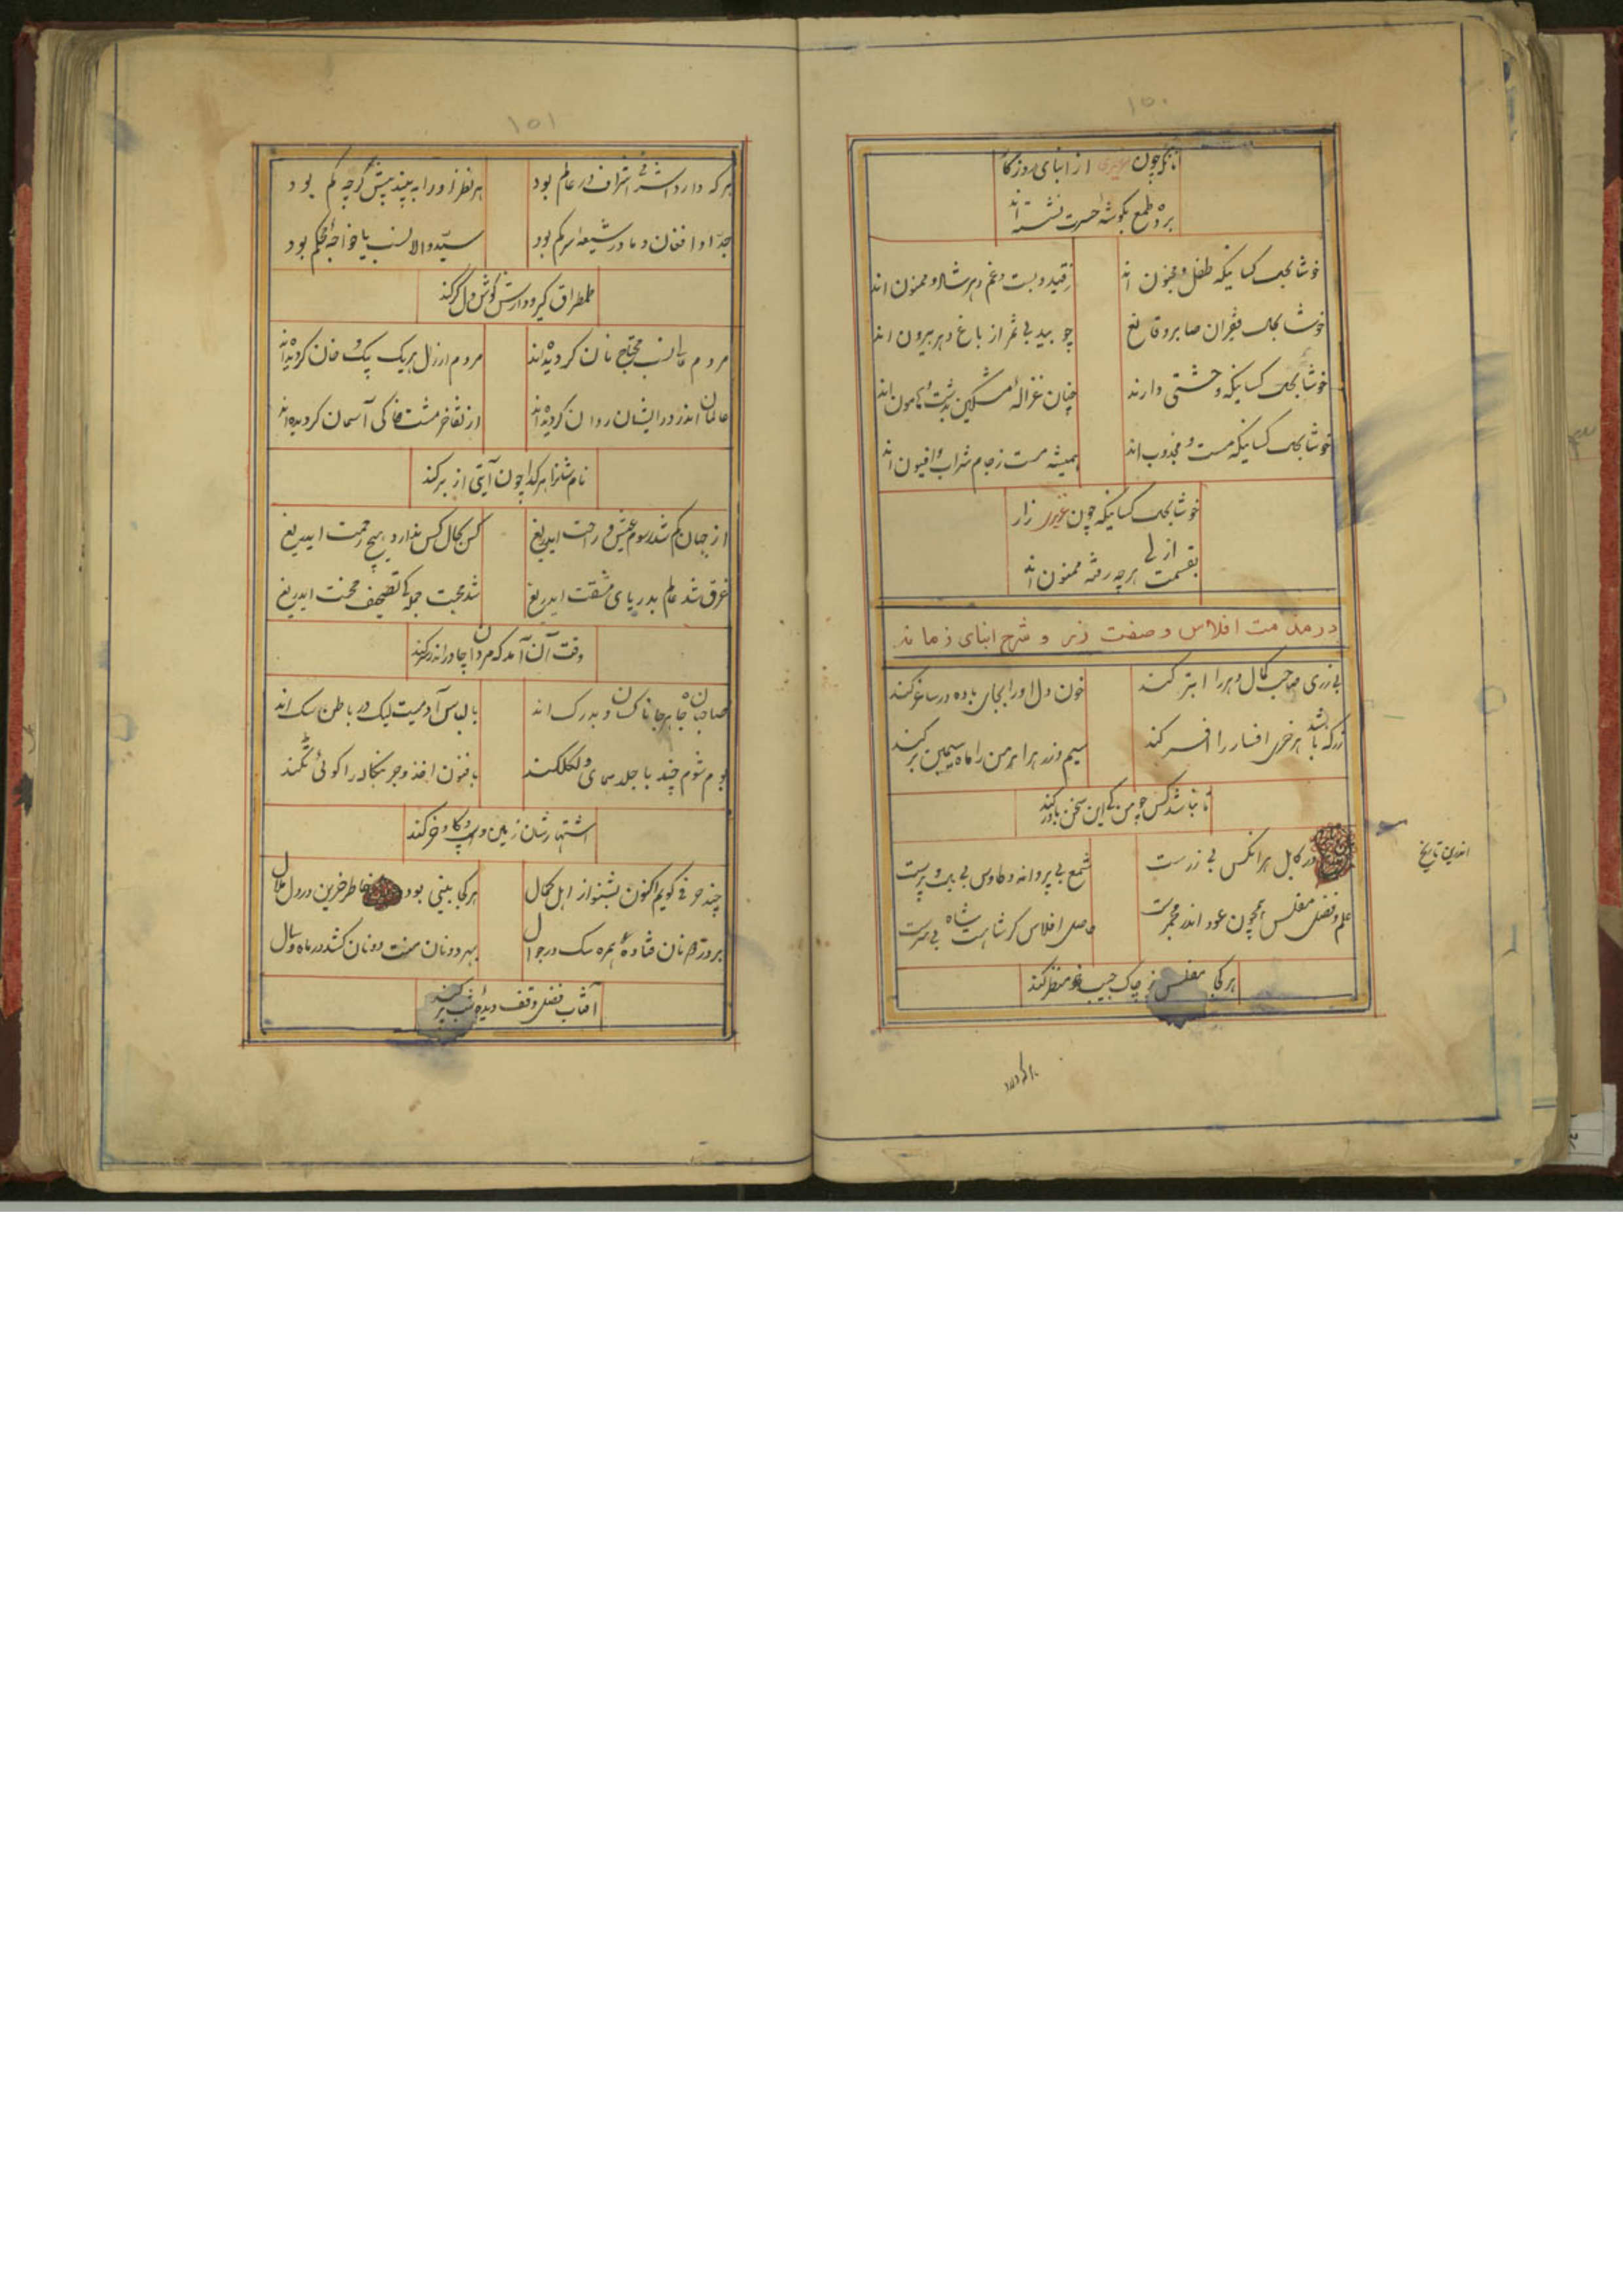 ۱۵۰
از ابنای روزگار
خوشا بحال کسانیکه طفل و مجنون اند
ز قید و بست و غم دهر شاد و ممنون اند
خوشا بحال فقیران صابر و قانع
چو بید بی ثمر از باغ دهر بیرون اند
خوشا بحال کسانیکه وحشتی دارند
چنان غزالهٔ مشکین بدشت و هامون اند
خوشا بحال کسانیکه مست و مجذوب اند
همیشه مست ز جام شراب و افیون اند
خوشا بحال کسانیکه چون زار
بقسمت ازلی هرچه رفته ممنون اند
در مذمت افلاس و صفت زر و شرح ابنای زمانه
بی زری صاحب کمال دهر را ابتر کند
خون دل او را بجای باده در ساغر کند
زر که باشد هر خر افسار را افسر کند
سیم و زر هر اهرمن را ماه سیمین بر کند
تا نباشد کس چو من کی این سخن باور کند
اندرین تاریخ
در کابل هر انکس بی زرست
شمع بی پروانه و طاوس بی بال و پرست
علم و فضل مفلس همچون عود اندر مجمرست
حاصل افلاس گر شاهست شاه بی سرست
هر کجا مفلس ز چاک جیب غم منظر کند
هر که دارد
۱۵۱
هر که دارد اشرفی اشراف در عالم بود
هر نظر او را به بیند بیش گرچه کم بود
جد او افغان و مادر شیعه اسرکم بود
سید والا نسب یا خواجهٔ محکم بود
طمطراق گیر و دارش گوش دل کر کند
مردم عالی نسب محتاج نان گردیده اند
مردم ارذل هر یک بیک و خان گردیده اند
عالمان اندر در ایشان روان گردیده اند
از تفاخر مشت خاکی آسمان گردیده اند
نام شانرا هر گدا چون آیتی از بر کند
از جهان گم شد رسوم عیش و راحت ایدریغ
کس بحال کس ندارد هیچ رحمت ایدریغ
غرق شد عالم بدریای مشقت ایدریغ
شد محبت جمله کی تصحیف محنت ایدریغ
وقت آن آمد که مردان چادر اندر سر کند
صاحبان جاه هر جا ناکسان و بدرگ اند
با لباس آدمیت لیک در باطن سگ اند
بوم شوم چند با جلد همای و لکلک اند
اشتهارشان زین و اسپ و گاو و خر کند
چند حرفی گویم اکنون بشنو از اهل کمال
هر کجا بینی بود خاطر حزین در دل ملال
بر در هر نان فتاده همره سگ در جوال
بهر دو نان منت دونان کشد در ماه و سال
آفتاب فضل وقف دیدهٔ شب پر کند